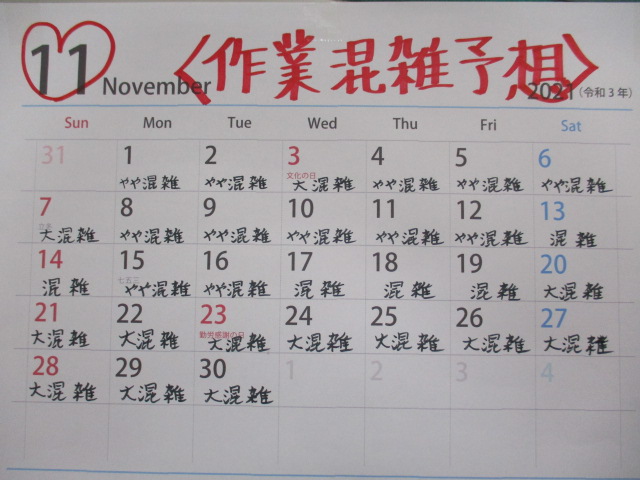 11 November 〈作業混雑予想〉
2021 (令和3年)
Sun Mon Tue Wed Thu Fri Sat
31 1 2 3 4 5 6
文化の日
やや混雑 やや混雑 大混雑 やや混雑 やや混雑 やや混雑
7 8 9 10 11 12 13
大混雑 やや混雑 やや混雑 やや混雑 やや混雑 やや混雑 混雑
14 15 16 17 18 19 20
七五三
混雑 やや混雑 やや混雑 混雑 混雑 混雑 大混雑
21 22 23 24 25 26 27
勤労感謝の日
大混雑 大混雑 大混雑 大混雑 大混雑 大混雑 大混雑
28 29 30 1 2 3 4
大混雑 大混雑 大混雑